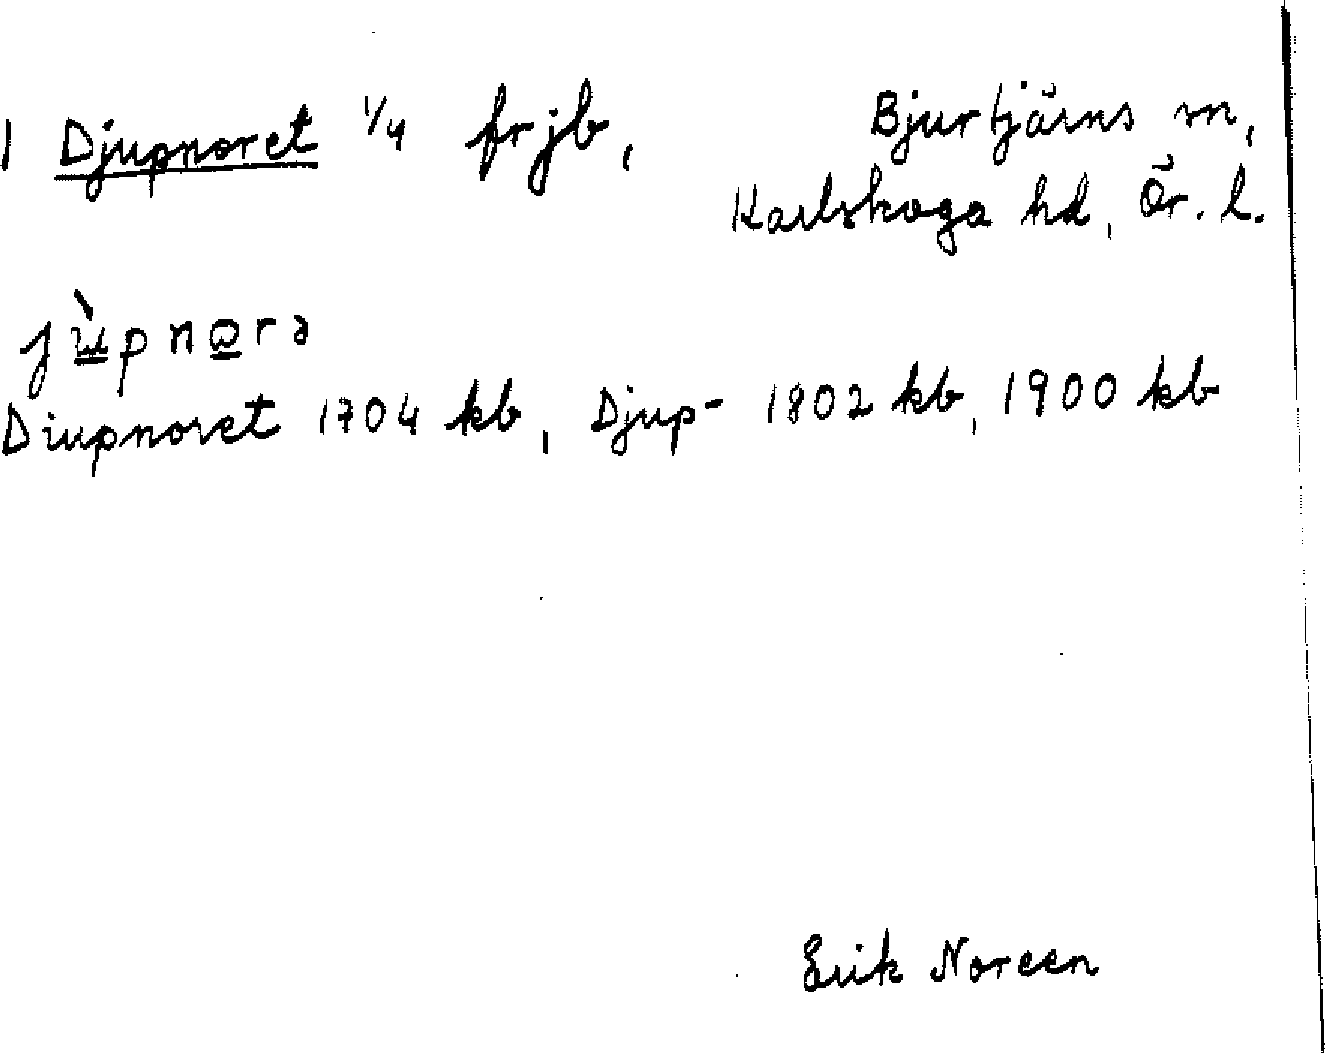 1 Djupnoret 1/4 frjb, Bjurtjärns sn,
Karlskoga hd, Ör. l.
jùpnørə
Diupnoret 1704 kb, Djup- 1802 kb, 1900 kb
Erik Noreen